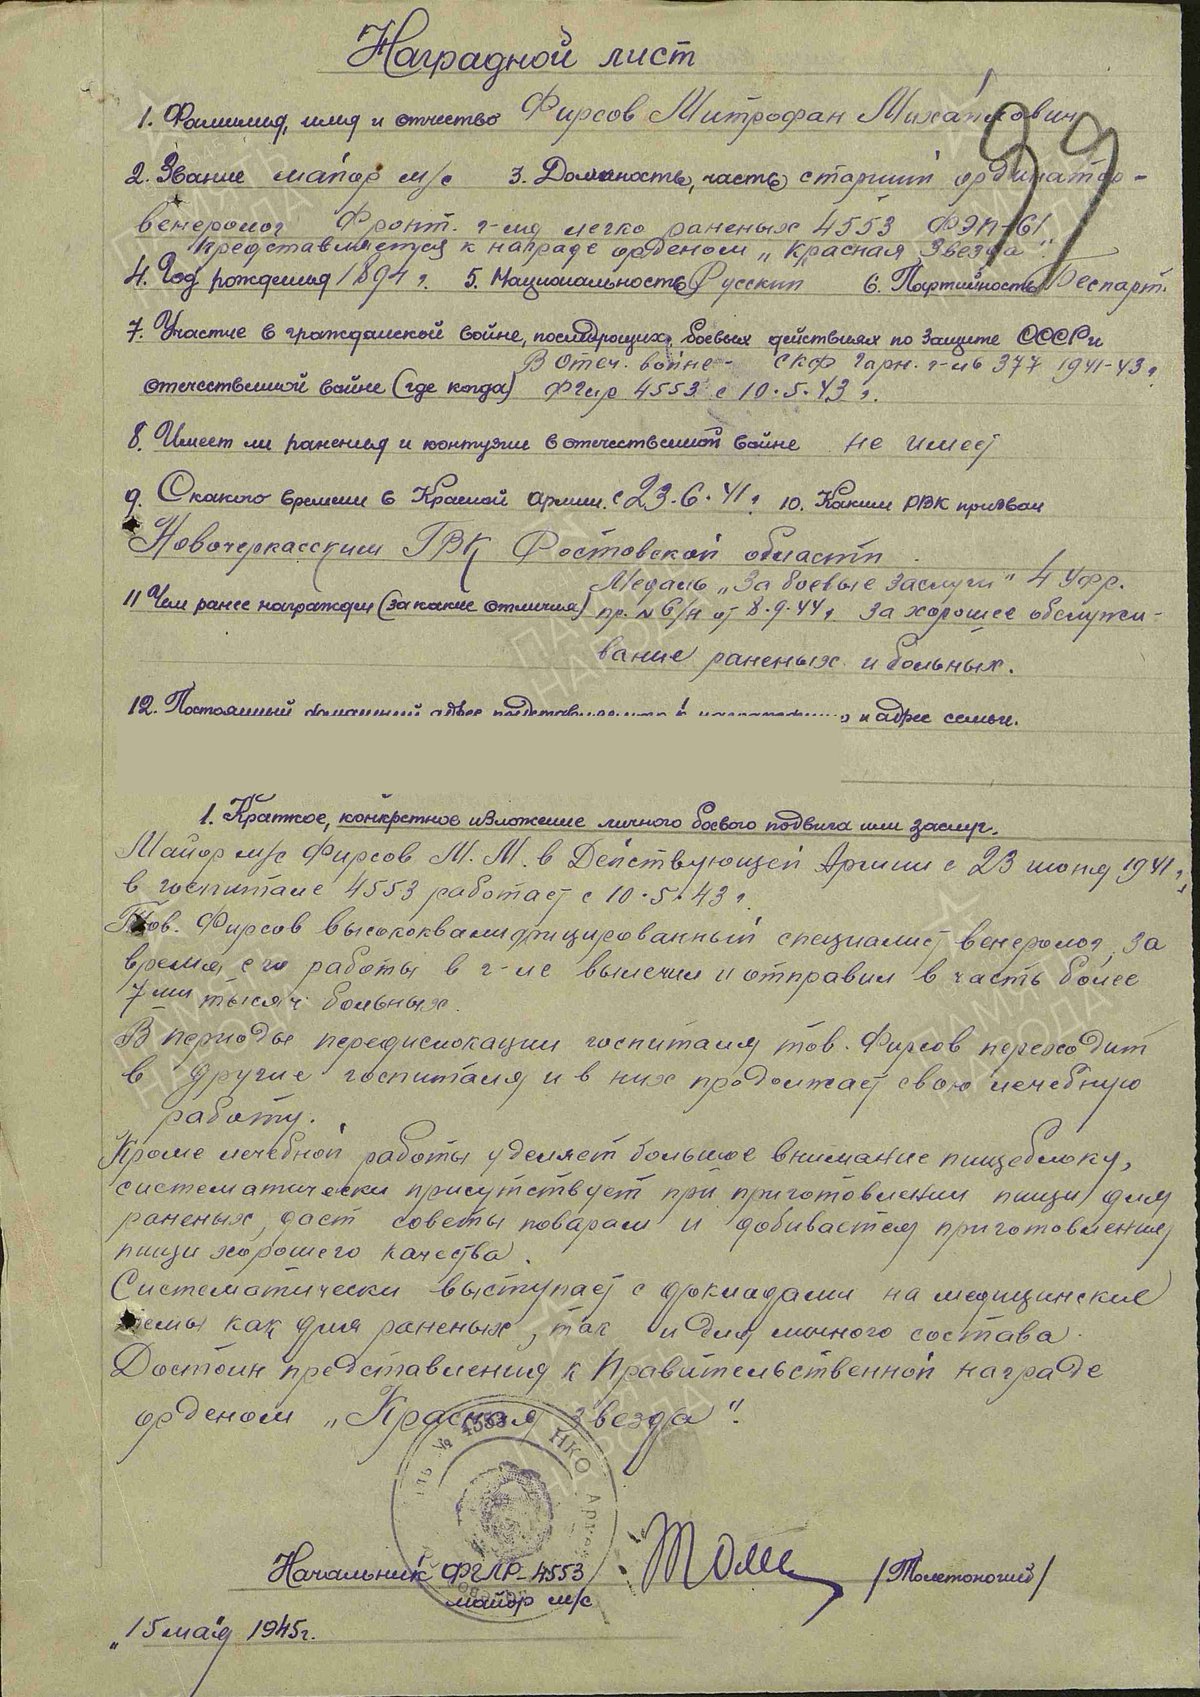 Наградной лист
39
1. Фамилия, имя и отчество Фирсов Митрофан Михайлович
2. Звание майор м/с 3. Должность, часть старший ординатор-
венеролог Фронт. г-ля легко раненых 4553 ФЭП-61
представляется к награде орденом „Красная Звезда".
4. Год рождения 1894 г. 5. Национальность Русский 6. Партийность Беспарт.
7. Участие в гражданской войне, последующих боевых действиях по защите СССР и
В Отеч. войне - СКФ Гарн. г-ль 377 1941-43 г.
отечественной войне (где когда) ФГлр 4553 с 10.5.43 г.
8. Имеет ли ранения и контузии в отечественной войне не имеет
9. С какого времени в Красной армии. с 23.6.41 г. 10. Каким РВК призван
Новочеркасским ГВК Ростовской области
Медаль „За боевые заслуги" 4 Укр.
11 Чем ранее награжден (за какие отличия) пр. № б/н от 8.9.44 г. за хорошее обслужи-
вание раненых и больных.
12. Постоянный домашний адрес представляемого к награждению и адрес семьи.
1. Краткое, конкретное изложение личного боевого подвига или заслуг.
Майор м/с Фирсов М.М. в Действующей Армии с 23 июня 1941 г.,
в госпитале 4553 работает с 10.5.43 г.
Тов. Фирсов высококвалифицированный специалист венеролог, за
время его работы в г-ле вылечил и отправил в часть более
7ми тысяч больных.
В периоды передислокации госпиталя тов. Фирсов переходит
в другие госпиталя и в них продолжает свою лечебную
работу.
Кроме лечебной работы уделяет большое внимание пищеблоку,
систематически присутствует при приготовлении пищи для
раненых, дает советы поварам и добивается приготовления
пищи хорошего качества.
Систематически выступает с докладами на медицинские
темы как для раненых, так и для личного состава.
Достоин представления к Правительственной награде
орденом „Красная Звезда".
№ 4553 НКО
Начальник ФГЛР-4553
майор м/с
/Толстоногий/
„15 мая 1945 г.
ПАМЯТЬ НАРОДА